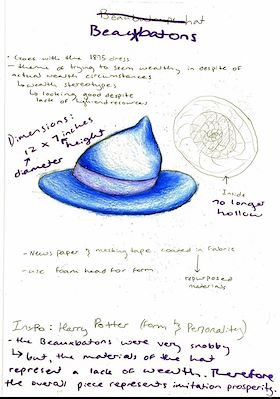 Beauxbatons hat
Beauxbatons
· Goes with the 1875 dress
- theme of trying to seem wealthy in despite of
actual wealth circumstances
↳ wealth stereotypes
↳ looking good despite
lack of resources
Dimensions:
12 x 7 inches
↑ height
diameter
Inside
no longer
hollow
- News paper & masking tape coated in fabric
↓
repurposed
materials
- use foam head for form
Inspo: Harry Potter (Form & Personality)
- the Beauxbatons were very snobby
↳ but, the materials of the hat
represent a lack of wealth. Therefore
the overall piece represents imitation prosperity.